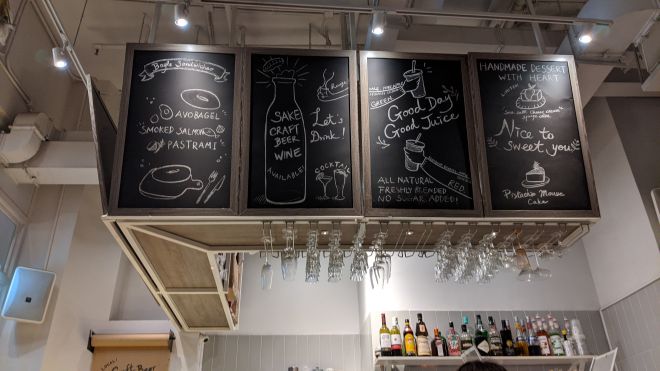 Bagle Sandwiches
AVOBAGEL
SMOKED SALMON
PASTRAMI
SAKE
CRAFT
BEER
WINE
AVAILABLE!
Let's
Drink!
COCKTAIL
GREEN
Good Day
Good Juice
RED
ALL NATURAL
FRESHLY BLENDED
NO SUGAR ADDED!
HANDMADE DESSERT
WITH HEART
Nice to
sweet you
Pistachio Mousse
Cake
Craft Beer